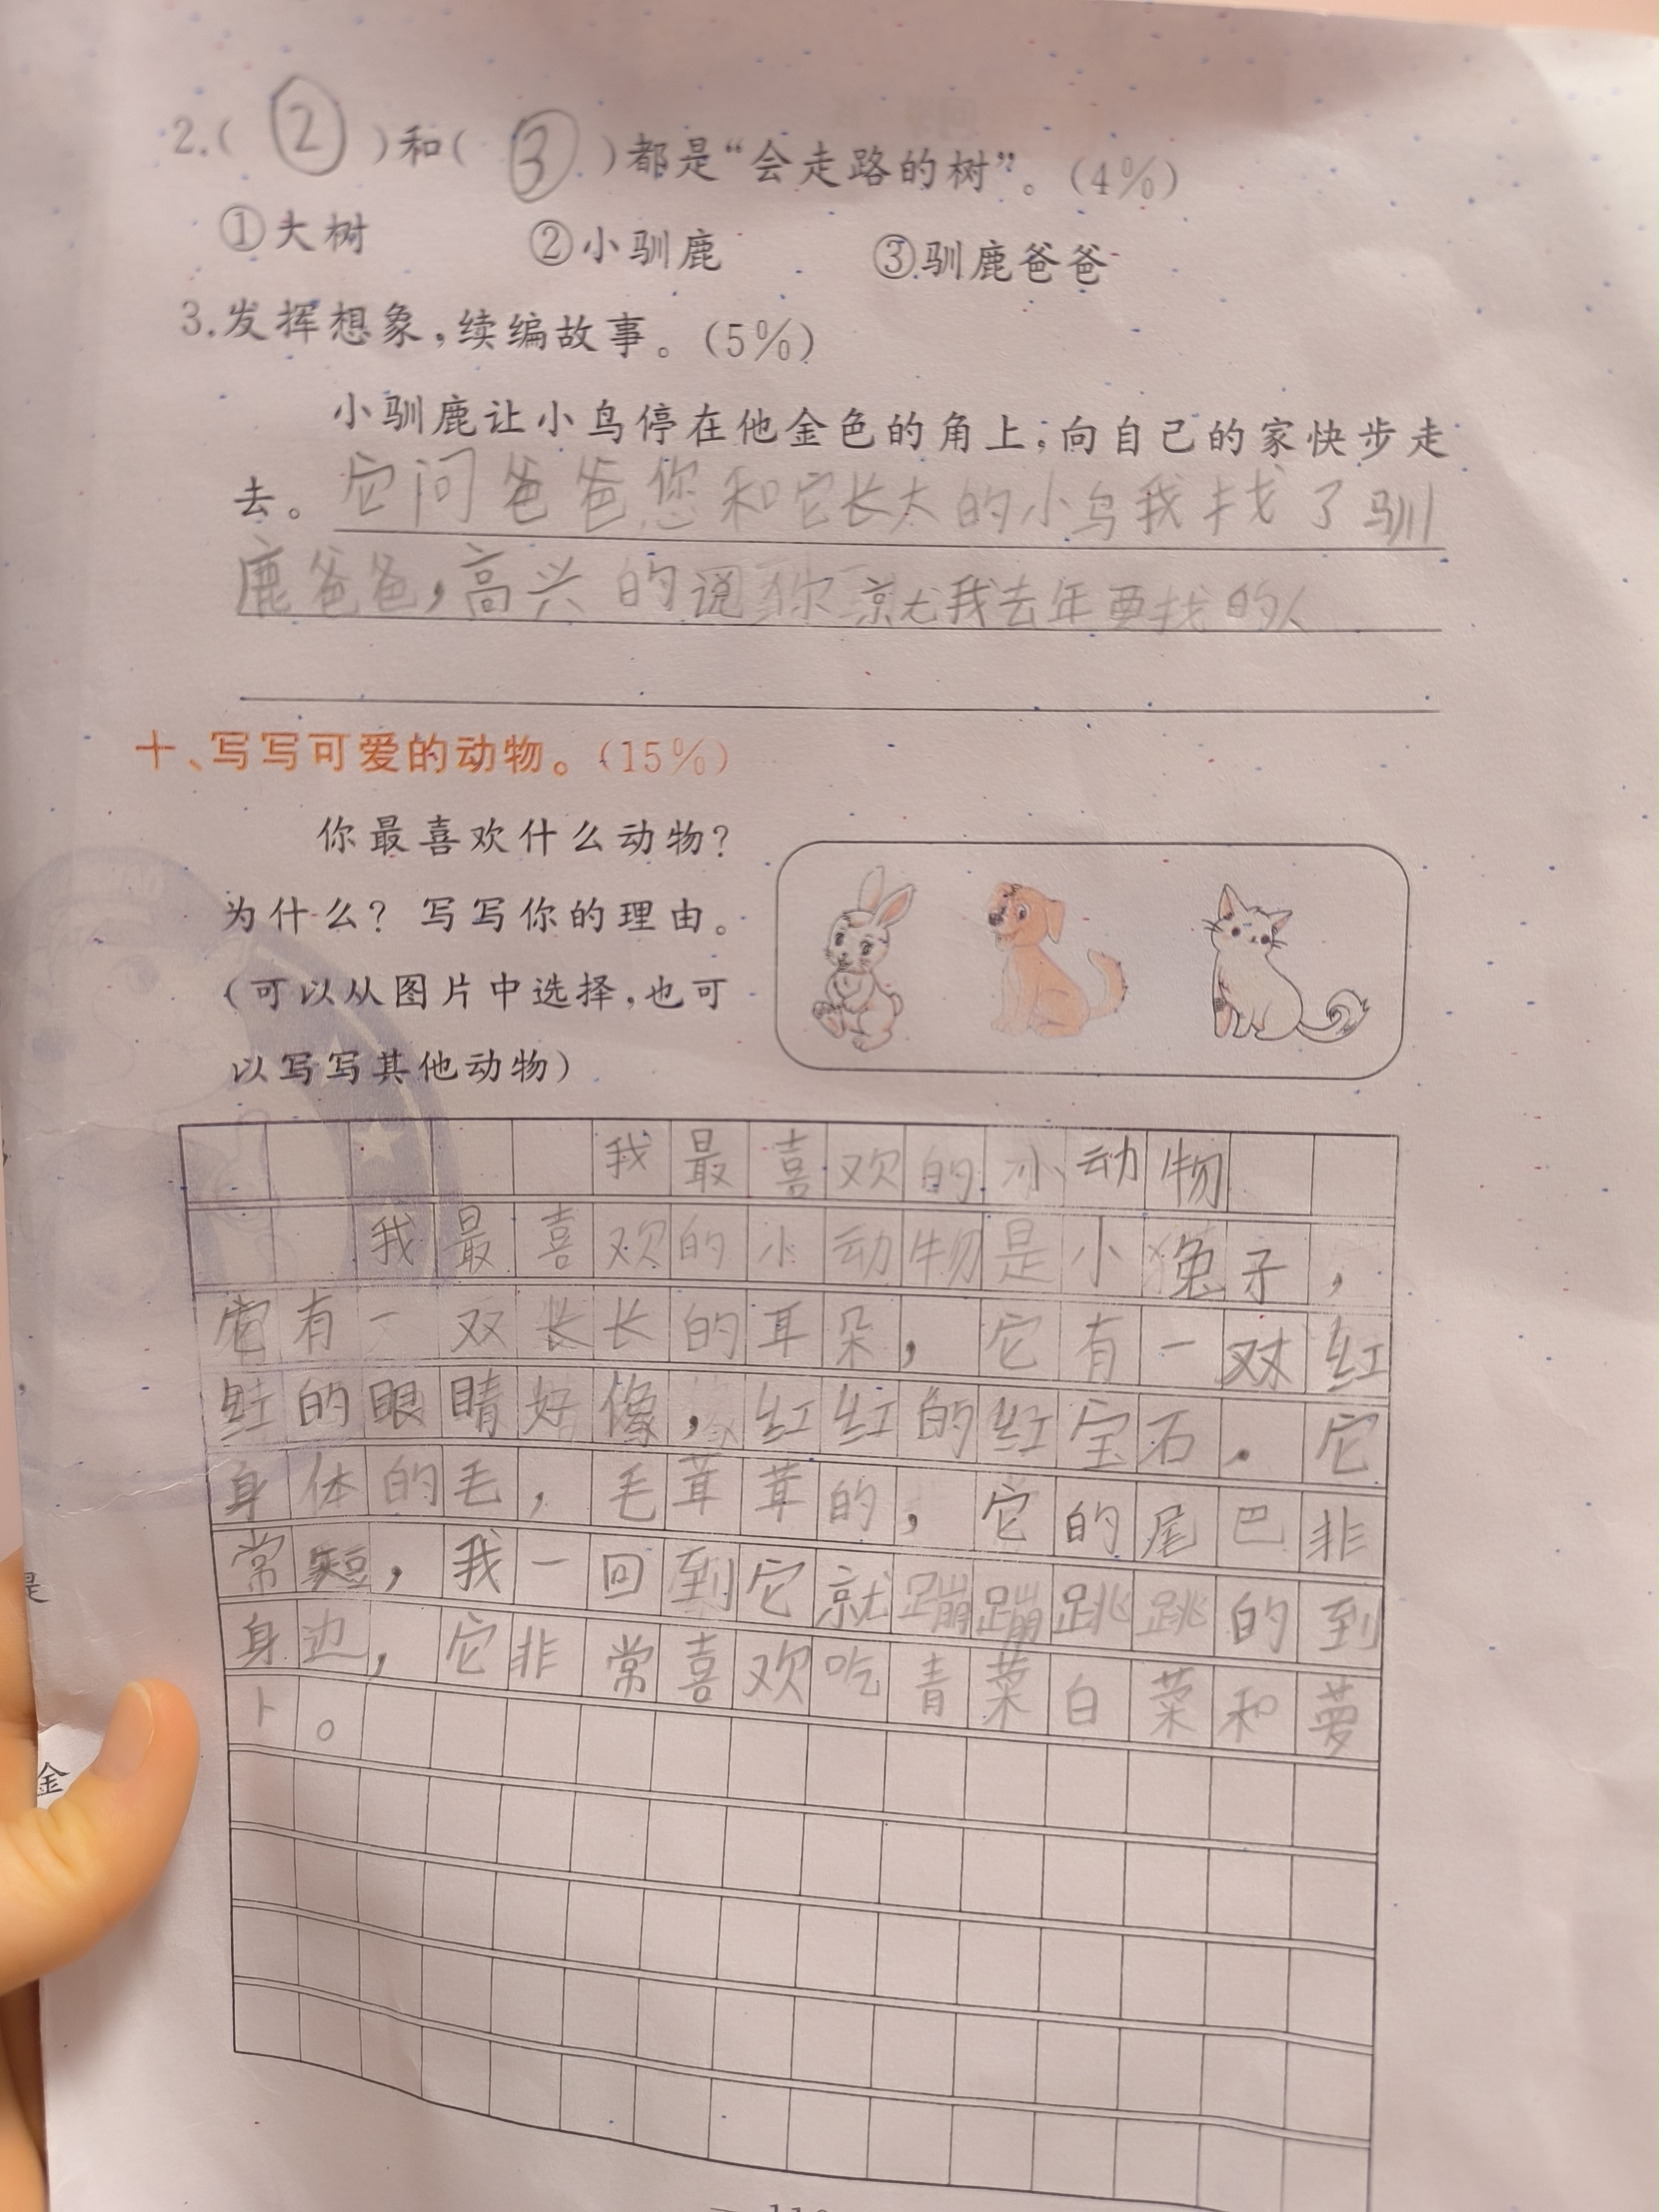 2.( ② )和( ③ )都是“会走路的树”。(4%)
①大树 ②小驯鹿 ③驯鹿爸爸
3.发挥想象,续编故事。(5%)
小驯鹿让小鸟停在他金色的角上,向自己的家快步走
去。它问爸爸您和它长大的小鸟我找了驯
鹿爸爸,高兴的说你就我去年要找的人
十、写写可爱的动物。(15%)
你最喜欢什么动物?
为什么? 写写你的理由。
(可以从图片中选择,也可
以写写其他动物)
我最喜欢的小动物
我最喜欢的小动物是小兔子,
它有一双长长的耳朵,它有一对红
红的眼睛好像,红红的红宝石.它
身体的毛,毛茸茸的,它的尾巴非
常短,我一回到它就蹦蹦跳跳的到
身边,它非常喜欢吃青菜白菜和萝
卜。
是
金